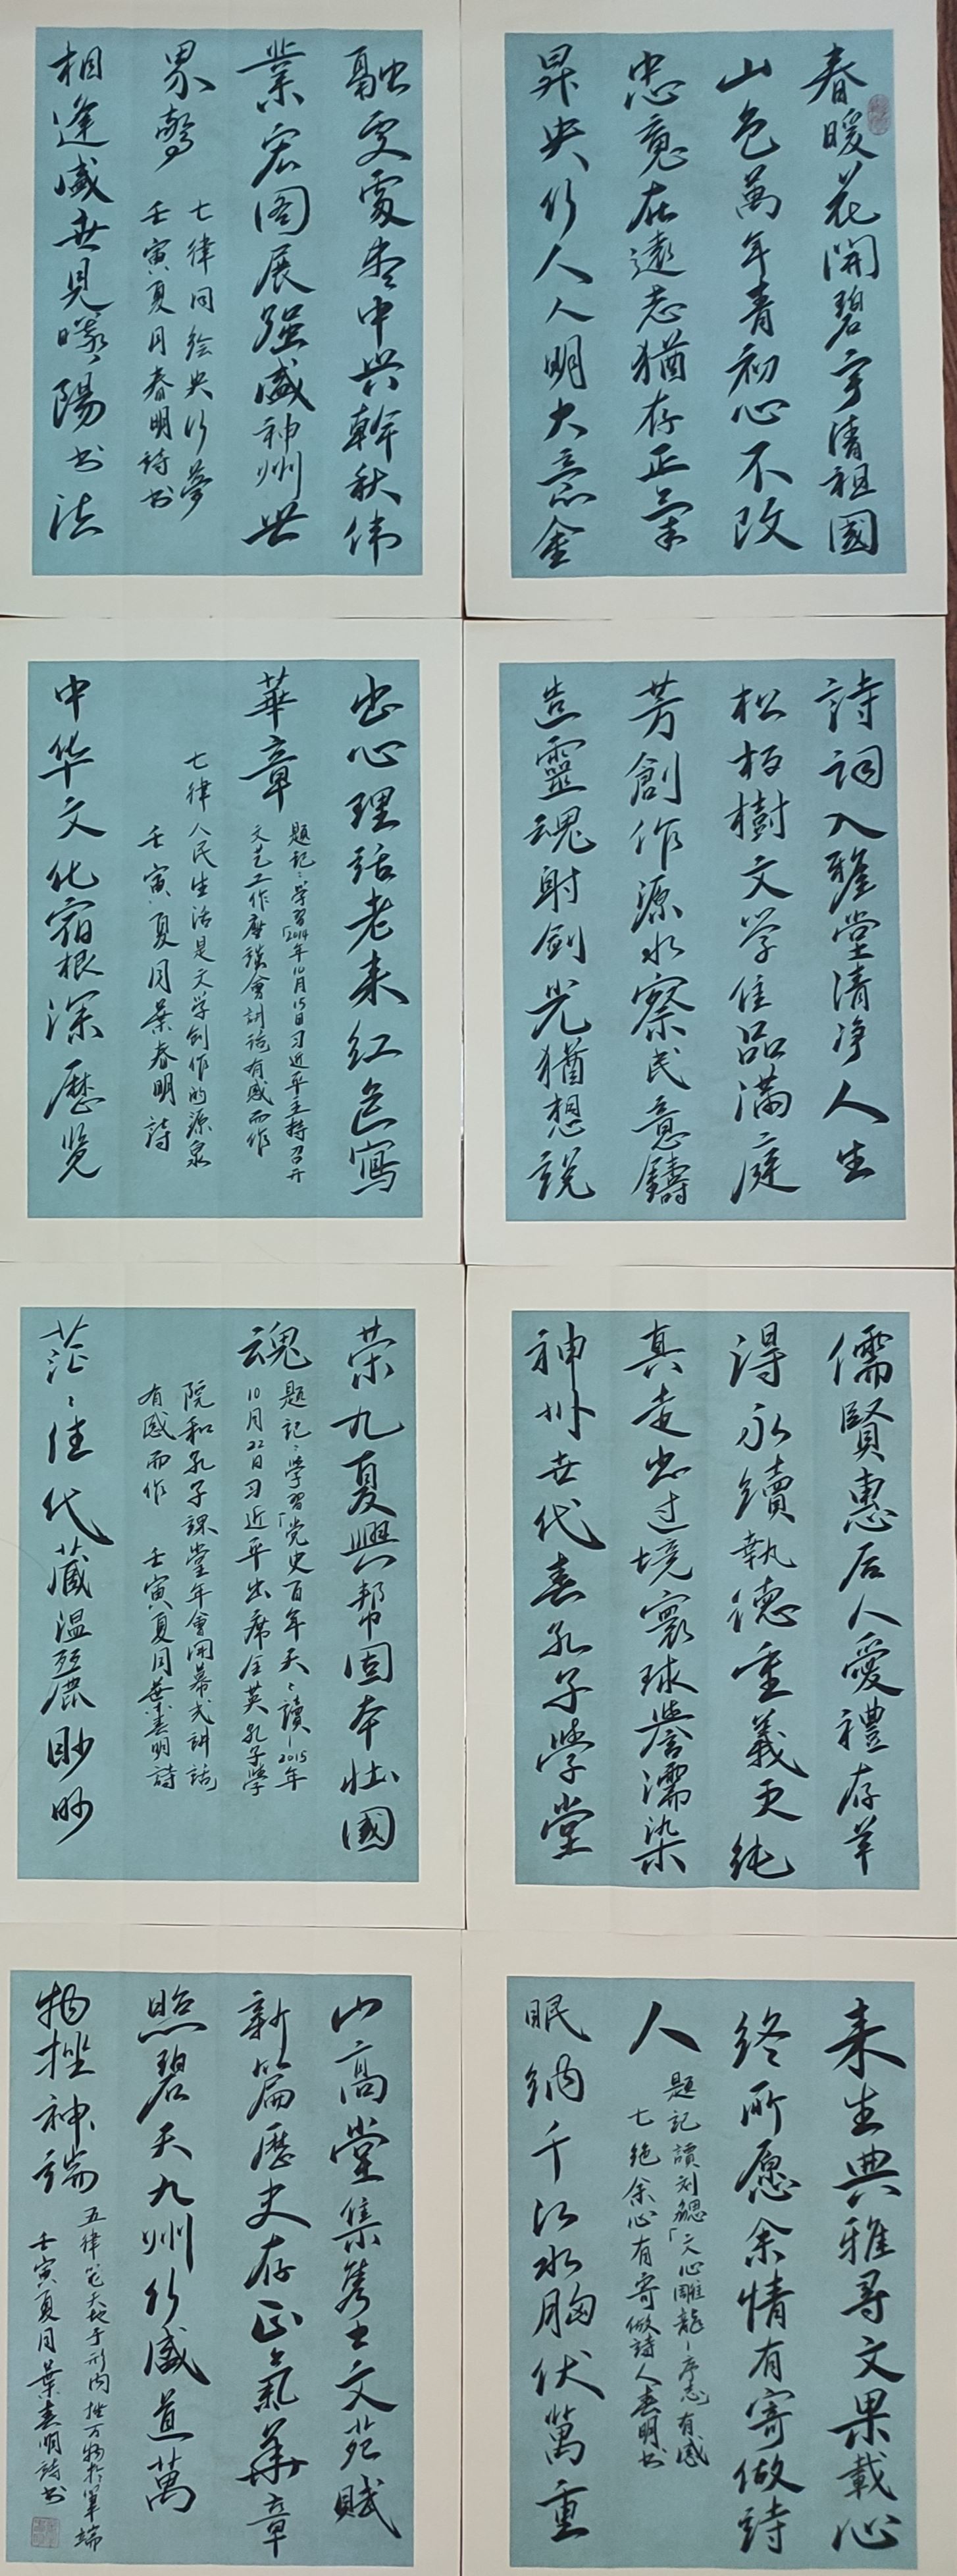 春暖花開碧宇清祖國
山色萬年青初心不改
忠魂在遠志猶存正氣
昇央行人人明大意金
融变處中兴幹秋伟
業宏图展强盛神州世
界驚
七律同绘央行夢
壬寅夏月春明诗书
相逢盛世見曦陽书法
詩词入雅堂清净人生
松柏樹文学佳品满庭
芳創作源水察民意鑄
造靈魂射剑光猶想説
忠心理话老来红色寫
華章
题记:学習「2014年10月15日习近平主持召开
文艺工作座谈會讲话有感而作
七律人民生活是文学创作的源泉
壬寅夏月葉春明詩
中华文化宿根深歷览
儒賢惠后人愛禮存羊
得永續執德重義更纯
真走出过境寰球誉濡染
神州世代春孔子学堂
荣九夏興帮固本壮國
魂
题记:学習「党史百年天天讀-2015年
10月22日习近平出席全英孔子學
院和孔子課堂年會開幕式讲話
有感而作 壬寅夏月葉春明詩
茫茫佳代藏温麗眇眇
来生典雅寻文果載心
终所愿余情有寄做詩
人
题記讀刘勰「文心雕龍-序志有感
七绝余心有寄做詩人春明书
眠纳千江水胸伏萬重
山高堂集隽士文苑赋
新篇歷史存正氣華章
照碧天九州行盛道萬
物挫神端
五律笼天地于形内挫万物於筆端
壬寅夏月葉春明詩书